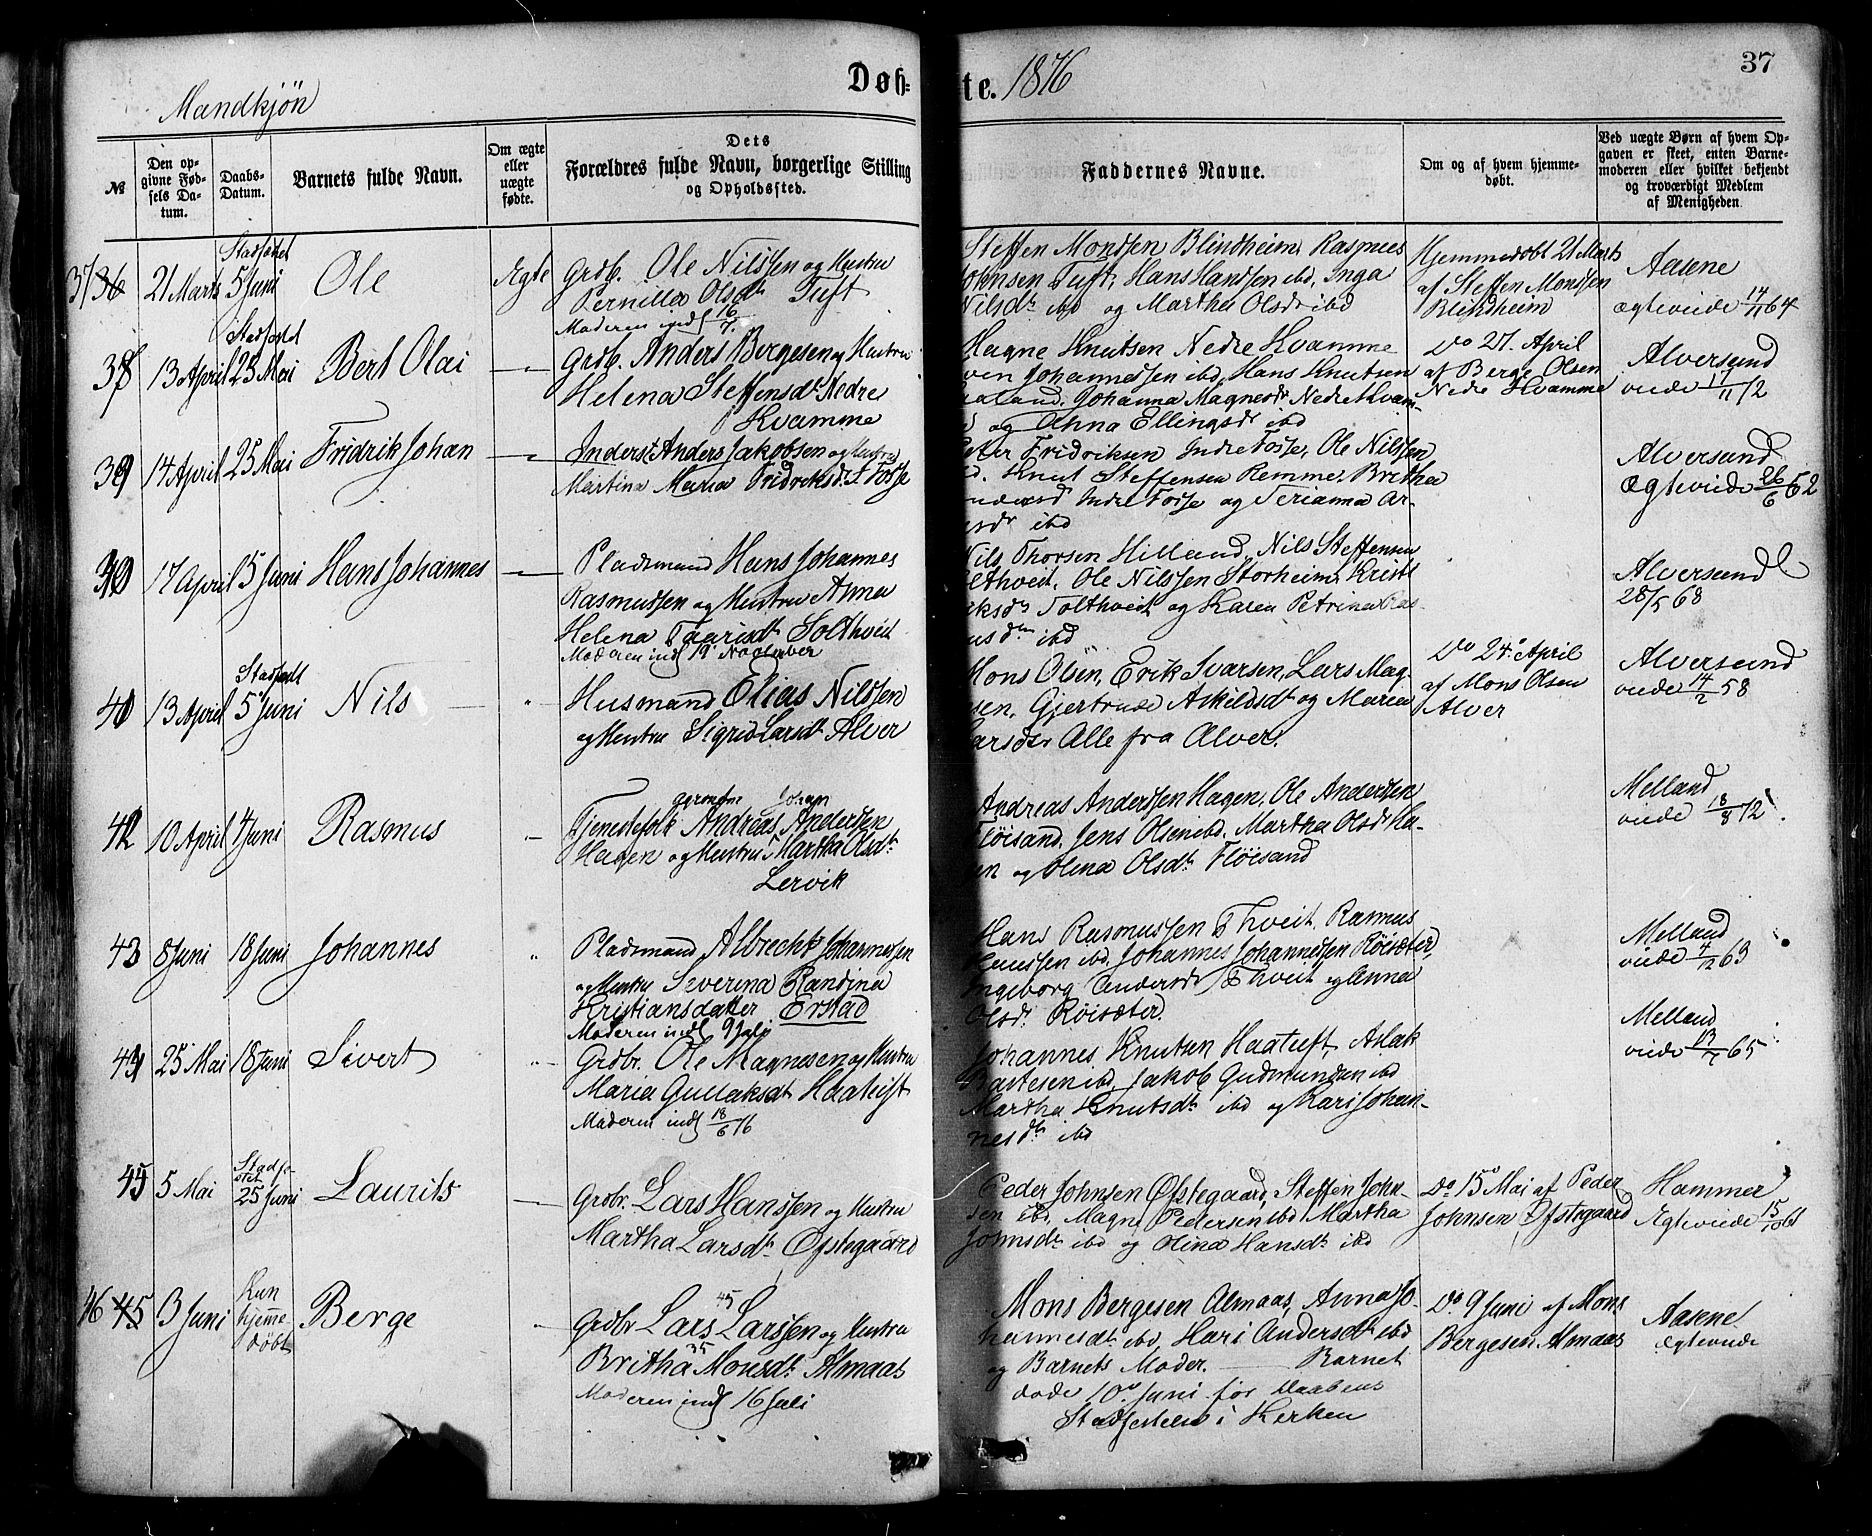 37
Mandkjön
Døb=
te. 1876
№
Den op-
givne Fød-
sels Da-
tum.
Daabs-
Datum.
Barnets fulde Navn.
Om ægte
eller
uægte
fødte.
Dets
Forældres fulde Navn, borgerlige Stilling
og Opholdssted.
Faddernes Navne.
Om og af hvem hjemme-
døbt.
Ved uægte Børn af hvem Op-
gaven er skeet, enten Barne-
moderen eller hvilket bekjendt
og troværdigt Medlem
af Menigheden.
37 36
21 Marts
5 Juni
Ole
Ægte
Grdb. Ole Nilssen og Hustru
Pernilla Olsdt Tuft
Moderen indl 16/7
Steffen Mondsen Blindheim, Rasmus
Johnsen Tuft, Hans Hanssen ibd, Inga
Nilsdt ibd og Martha Olsdr ibd
Hjemmedöbt 21 Marts
af Steffen Monssen
Blindheim
Aasene
Ægteviede 64
38
13 April
Stadfæstet
25 Mai
Bert Olai
Grdb. Anders Bergesen og Hustru
Helena Steffensdt Nedre
Kvamme
Magne Knutsen Nedre Kvamme
Johannessen ibd, Hans Knutsen
Johanna Magnesdr Nedre Kvam-
og Anna Ellingsdr ibd
Do 27. April
af Berge Olsen
Nedre Kvamme
Alversund
viede 17/11 72
39
14 April
25 Mai
Fridrik Johan
Anders Jakobsen og Hustru
Martina Maria Fridriksdr. I Fosse
Fridriksen Indre Fosse, Ole Nilssen
Knut Steffensen Remme, Britha
Indre Fosse og Serianna An-
ibd
Alversund
Ægteviede 26/6 62
40
17 April
15 Juni
Hans Johannes
Pladsmand Hans Johannes
Rasmussen og Hustru Anna
Helena Tolthveit
Moderen indl 19 November
Nils Thorsen Hilland, Nils Steffensen
Tolthveit, Ole Nilssen Storheim,
Tolthveit og Karen Petrina Ras-
musdtr ibd
Alversund
28/5 68
41
13 April
5 Juni
Nils
"
Husmand Elias Nilssen
og Hustru Sigrid Larsdt Alver
Mons Olsen, Erik Ivarsen, Lars Mag-
sen, Gjertrude Askildsdt og Maria
Larsdtr Alle fra Alver.
Do 24. April
af Mons Olsen
Alver
Alversund
viede 14/2 58
42
10 April
4 Juni
Rasmus
Tjenestefolk Andreas Andersen
Hagen og Hustru Martha Olsdt
Lervik
Andreas Anderssen Hagen, Ole Anderssen
Flöisand, Jens Olsen ibd, Martha Olsdt Ha-
gen og Olina Olsdt. Flöisand
Melland
viede 18/8 72
43
8 Juni
18 Juni
Johannes
"
Pladsmand Albrecht Johannessen
og Hustru Severina Randina
Kristiansdatter Erstad
Moderen indl 9 Juli
Hans Rasmussen Thveit, Rasmus
Knussen ibd, Johannes Johannessen Röisæter,
Ingeborg Andersdt Thveit og Anna
Olsdt Röisæter.
Melland
viede 4/12 63
44
25 Mai
18 Juni
Sivert
"
Grdbr. Ole Magnesen og Hustru
Maria Gullaksdt Haatuft
Moderen indl 18/6 76
Johannes Knutsen Haatuft, Aslak
ibd, Jakob Gudmundsen ibd
Martha Knutsdt. ibd og Kari Johan-
nesdt. ibd
Melland
viede 65
45
5 Mai
Stadfæ-
stet
25 Juni
Laurits
Grdbr. Lars Hanssen og Hustru
Martha Larsdt. Ofstegaard
Peder Johnsen Ofstegaard, Steffen John-
sen ibd, Magne Pedersen ibd, Martha
Johnsdt. ibd og Olina Hansdt. ibd
Do 15 Mai af Peder
Johnsen Ofstegaard
Hammer
Ægteviede
46 45
3 Juni
Kun
hjemme
döbt
Berge
Grdbr Lars Larssen og Hustru 45
Britha Monsdt. Almaas 35
Moderen indl 16 Juli
Mons Bergesen Almaas, Anna Jo-
hannesdt. ibd, Kari Andersdt ibd
og Barnets Moder. — Barnet
döde 10 Juni för Daabens
Stadfæstelse i Kirken
Do 9 Juni af Mons
Bergesen Almaas
Aasene
Ægteviede